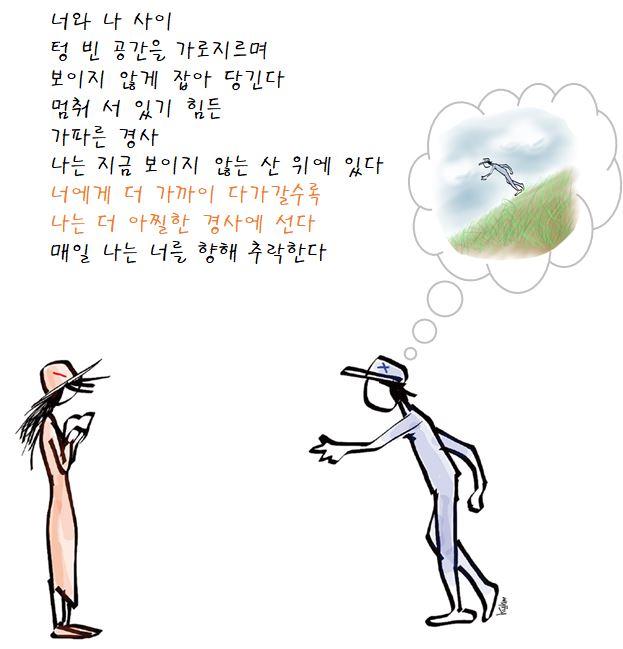 너와 나 사이
텅 빈 공간을 가로지르며
보이지 않게 잡아 당긴다
멈춰 서 있기 힘든
가파른 경사
나는 지금 보이지 않는 산 위에 있다
너에게 더 가까이 다가갈수록
나는 더 아찔한 경사에 선다
매일 나는 너를 향해 추락한다